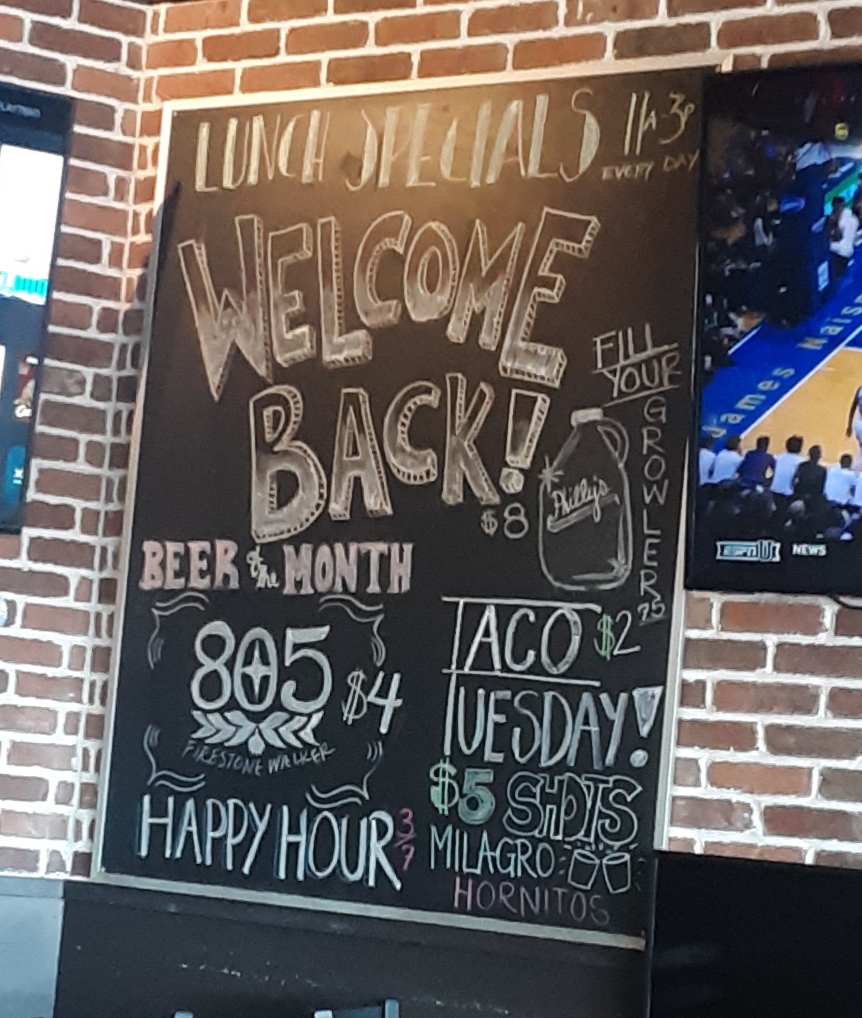 LUNCH SPECIALS 11A-3P
EVERY DAY
WELCOME
BACK!
FILL
YOUR
GROWLER
$8
Philly's
BEER of the MONTH
TACO $2
TUESDAY!
805 $4
FIRESTONE WALKER
$5 SHOTS
MILAGRO
HORNITOS
HAPPY HOUR 3/7
James Nais
ESPNU NEWS